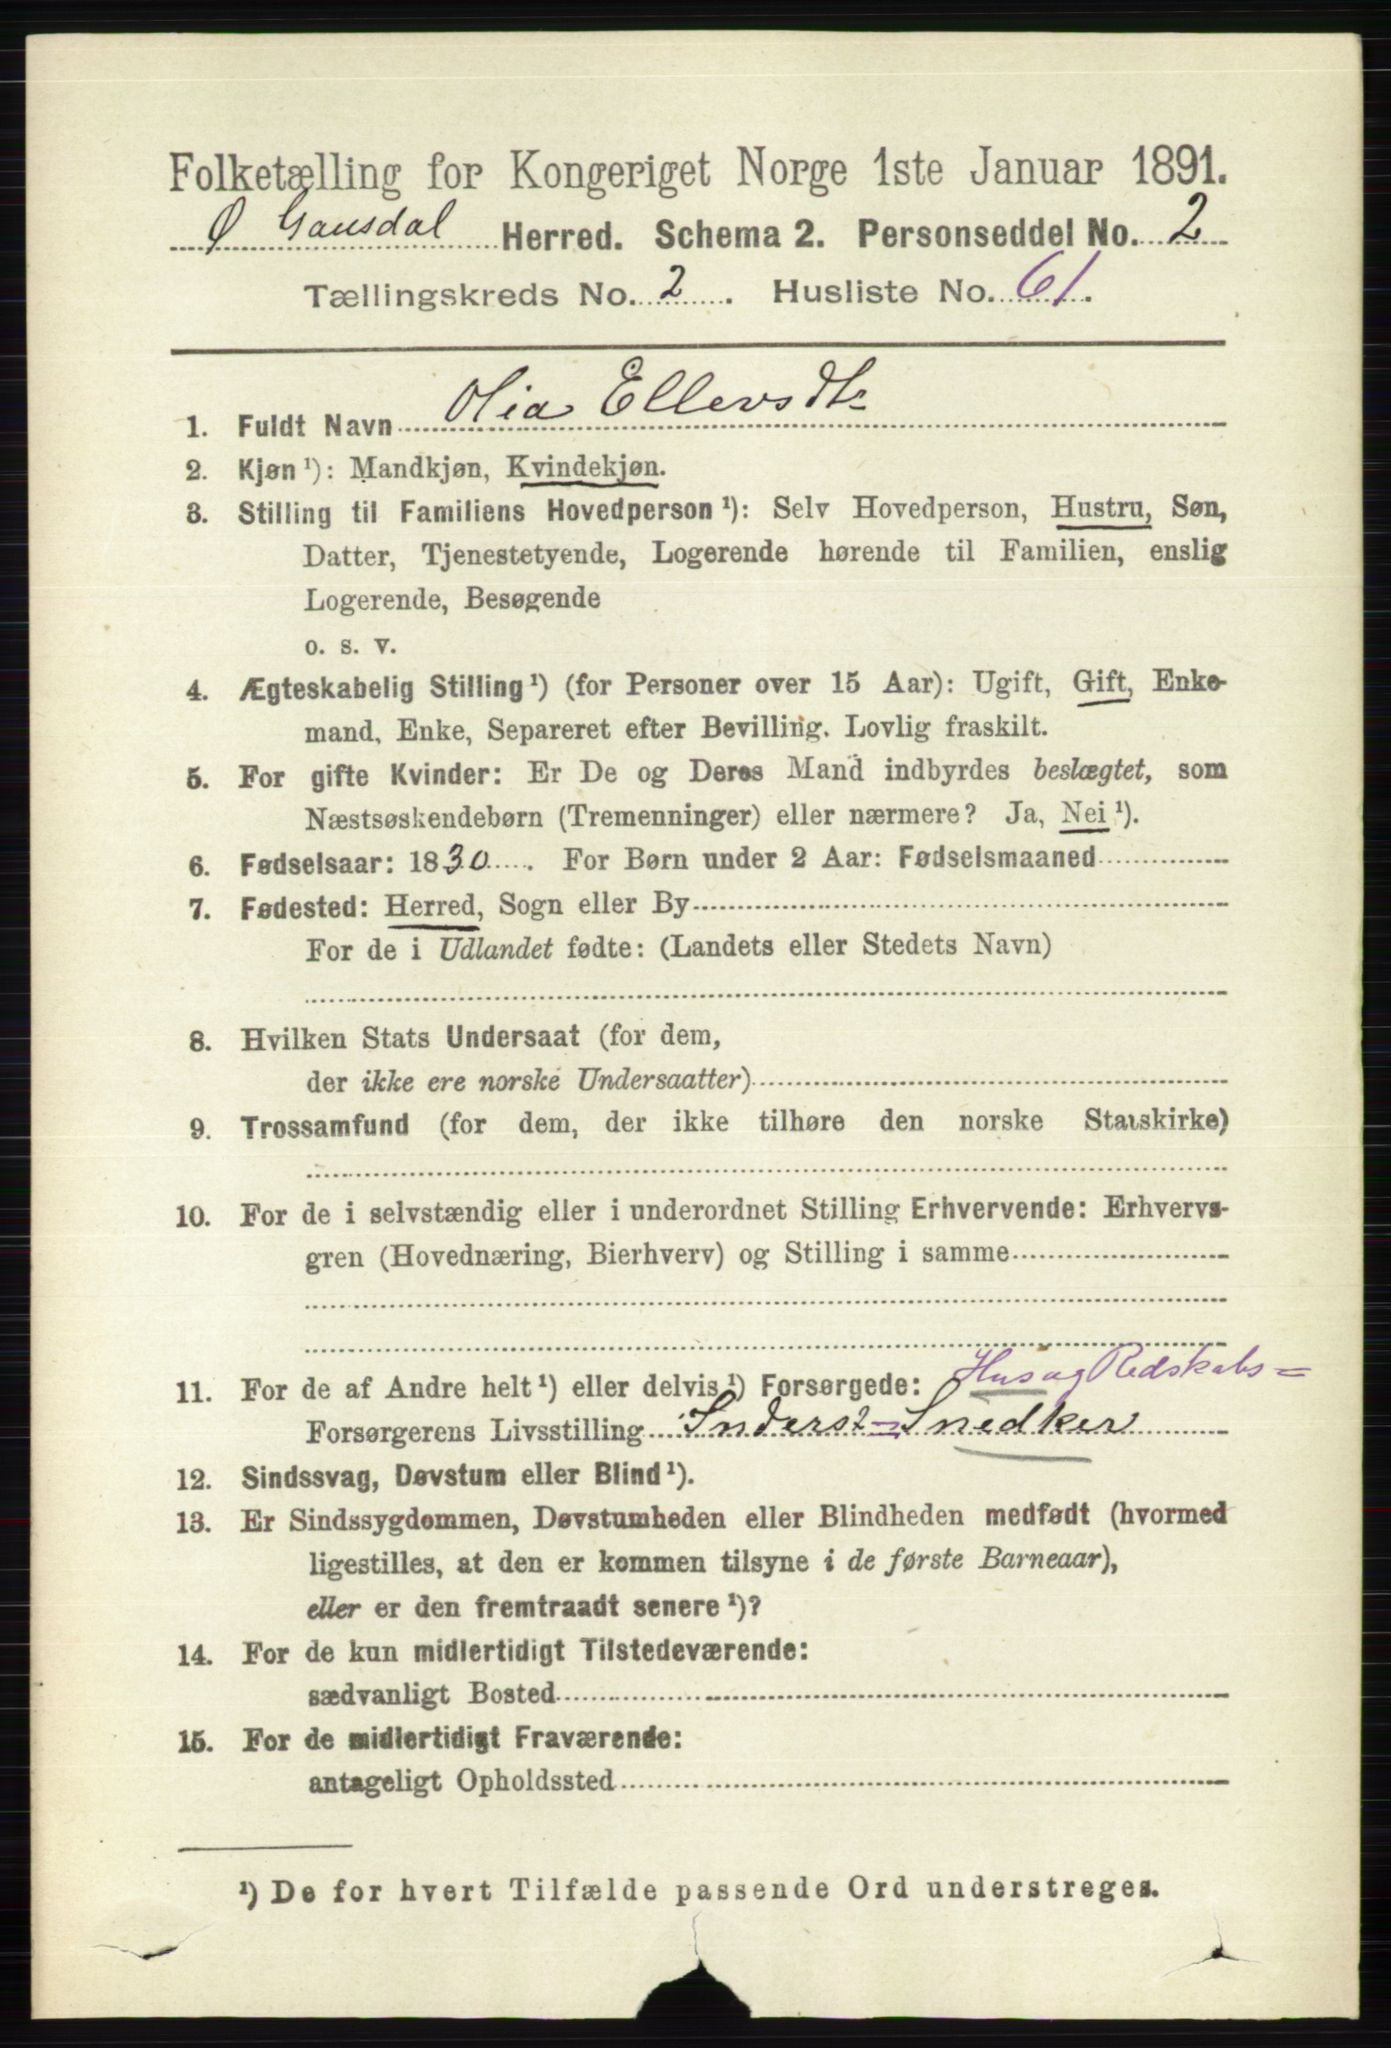 Folketælling for Kongeriget Norge 1ste Januar 1891.
Ø Gausdal Herred. Schema 2. Personseddel No. 2
Tællingskreds No. 2. Husliste No. 61.
1. Fuldt Navn Olia Ellevsdtr
2. Kjøn ¹): Mandkjøn, Kvindekjøn.
3. Stilling til Familiens Hovedperson ¹): Selv Hovedperson, Hustru, Søn,
Datter, Tjenestetyende, Logerende hørende til Familien, enslig
Logerende, Besøgende
o. s. v.
4. Ægteskabelig Stilling ¹) (for Personer over 15 Aar): Ugift, Gift, Enke-
mand, Enke, Separeret efter Bevilling. Lovlig fraskilt.
5. For gifte Kvinder: Er De og Deres Mand indbyrdes beslægtet, som
Næstsøskendebørn (Tremenninger) eller nærmere? Ja, Nei ¹).
6. Fødselsaar: 1830. For Børn under 2 Aar: Fødselsmaaned
7. Fødested: Herred, Sogn eller By
For de i Udlandet fødte: (Landets eller Stedets Navn)
8. Hvilken Stats Undersaat (for dem,
der ikke ere norske Undersaatter)
9. Trossamfund (for dem, der ikke tilhøre den norske Statskirke)
10. For de i selvstændig eller i underordnet Stilling Erhvervende: Erhvervs-
gren (Hovednæring, Bierhverv) og Stilling i samme
Hus og Redskabs=
11. For de af Andre helt ¹) eller delvis ¹) Forsørgede:
Forsørgerens Livsstilling Inderst=Snedker
12. Sindssvag, Døvstum eller Blind ¹).
13. Er Sindssygdommen, Døvstumheden eller Blindheden medfødt (hvormed
ligestilles, at den er kommen tilsyne i de første Barneaar),
eller er den fremtraadt senere ¹)?
14. For de kun midlertidigt Tilstedeværende:
sædvanligt Bosted
15. For de midlertidigt Fraværende:
antageligt Opholdssted
¹) De for hvert Tilfælde passende Ord understreges.